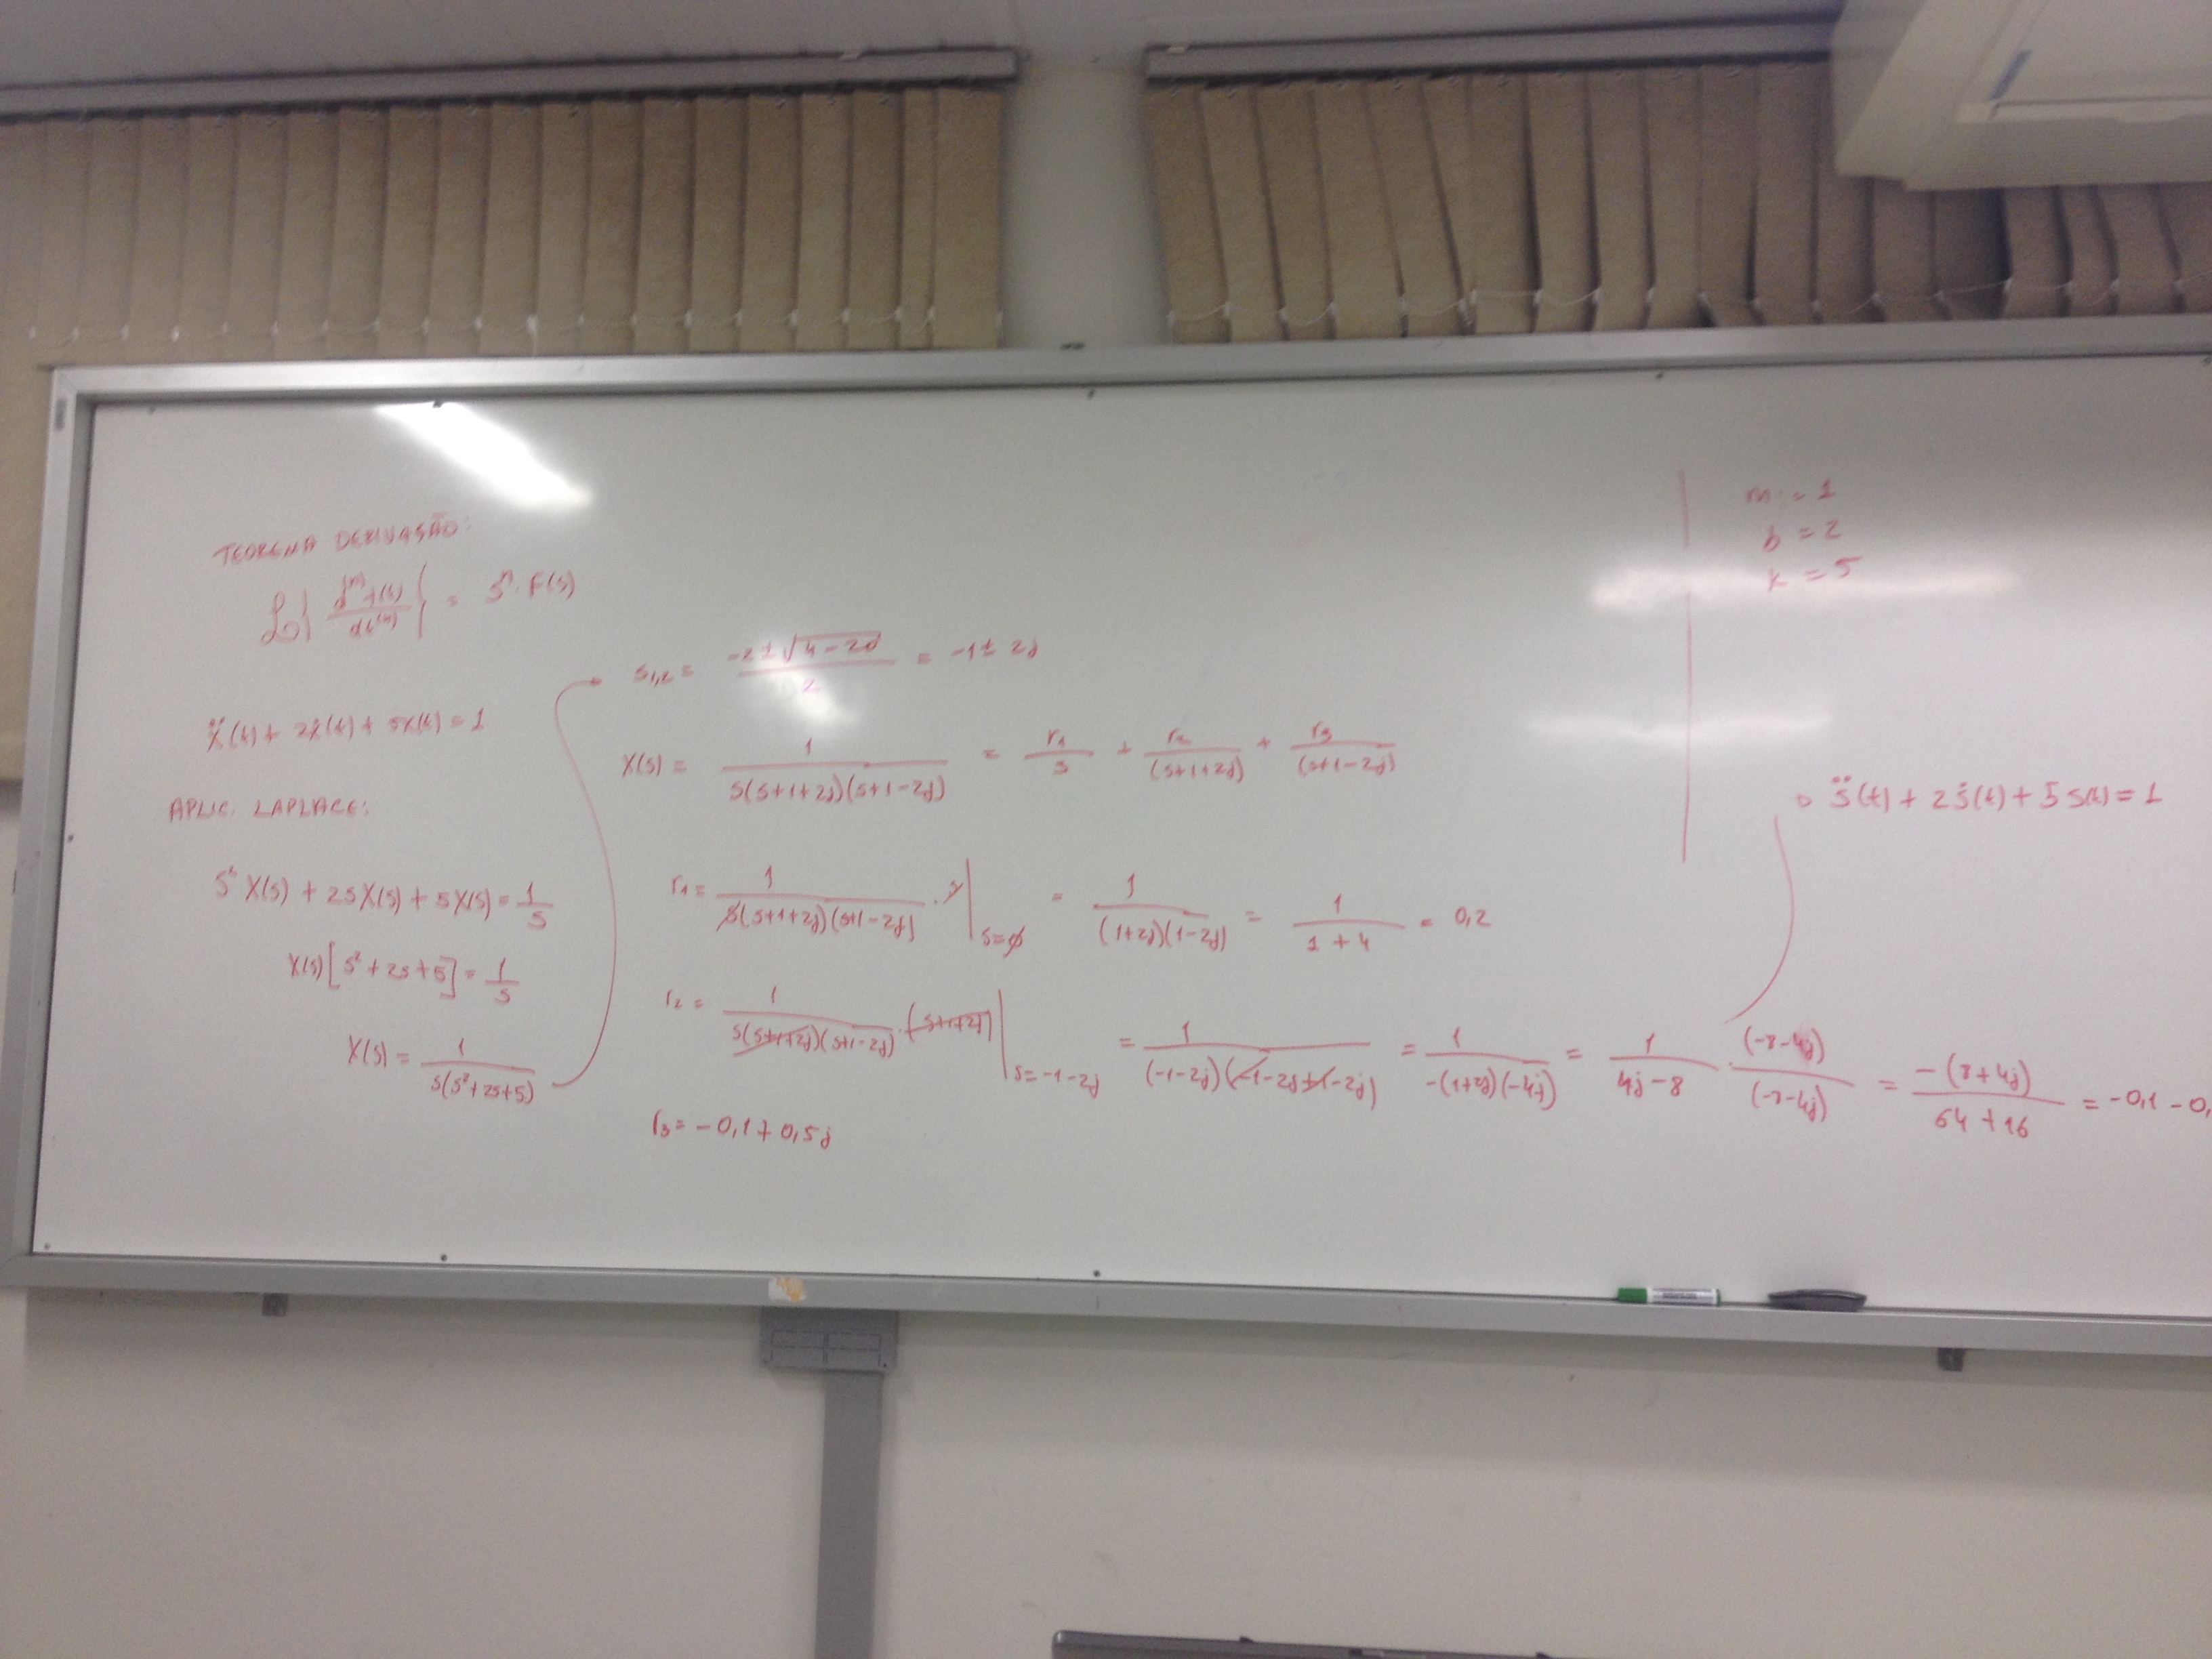 TEOREMA DERIVAÇÃO:
ℒ{ d⁽ⁿ⁾f(t) / dt⁽ⁿ⁾ } = Sⁿ·F(s)
ẍ(t) + 2ẋ(t) + 5x(t) = 1
APLIC. LAPLACE:
S² X(s) + 2sX(s) + 5X(s) = 1/s
X(s)[s² + 2s + 5] = 1/s
X(s) = 1 / s(s²+2s+5)
s1,2 = (-2 ± √(4-20)) / 2 = -1 ± 2j
X(s) = 1 / s(s+1+2j)(s+1-2j) = r1 / s + r2 / (s+1+2j) + r3 / (s+1-2j)
r1 = 1 / s(s+1+2j)(s+1-2j) · s | s=0 = 1 / (1+2j)(1-2j) = 1 / 1+4 = 0,2
r2 = 1 / s(s+1+2j)(s+1-2j) · (s+1+2j) | s=-1-2j = 1 / (-1-2j)(-1-2j+1-2j) = 1 / -(1+2j)(-4j) = 1 / 4j-8 · (-8-4j) / (-8-4j) = -(8+4j) / 64+16 = -0,1 -0,
r3 = -0,1 + 0,5j
m = 1
b = 2
k = 5
s̈(t) + 2ṡ(t) + 5s(t) = 1